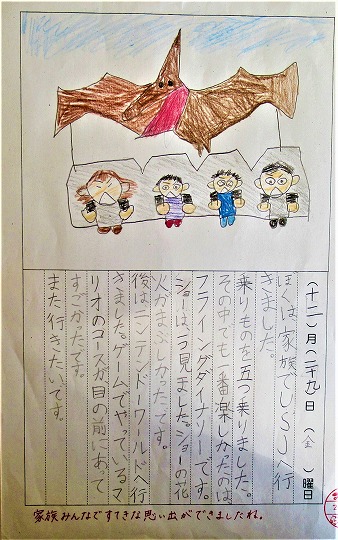 (十二)月(二十九)日(金)曜日
ぼくは、家族でUSJへ行
きました。
乗りものを五つ乗りました。
その中でも一番楽しかったのは、
フライングダイナソーです。
ショーは、二つ見ました。ショーの花
火がまぶしかったです。
後は、ニンテンドーワールドへ行
きました。ゲームでやっているマ
リオのコースが目の前にあって
すごかったです。
また行きたいです。
家族みんなですてきな思い出ができましたね。